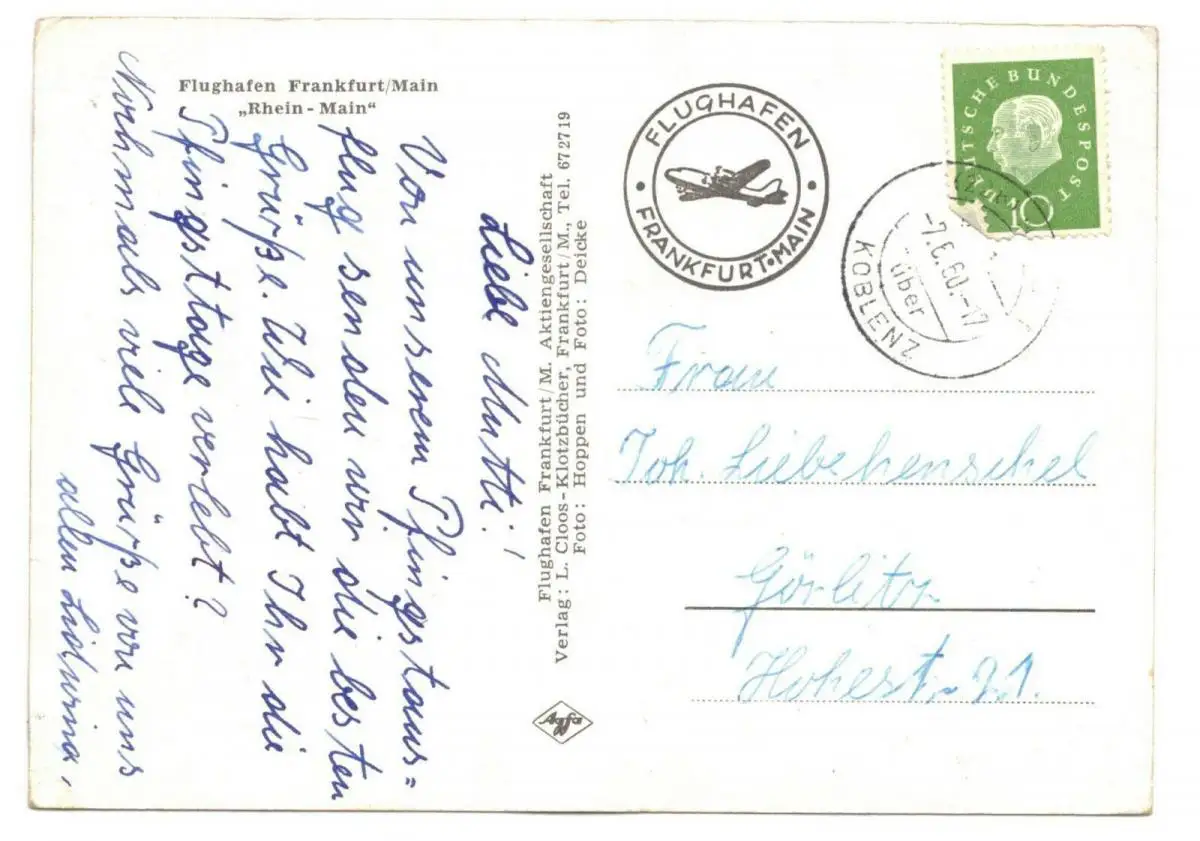 Flughafen Frankfurt/Main
„Rhein-Main“
Liebe Mutti!
Von unserem Pfingstaus=
flug senden wir die besten
Grüße. Wie habt Ihr die
Pfingsttage verlebt?
Nochmals viele Grüße von uns
allen
Flughafen Frankfurt/M. Aktiengesellschaft
Verlag: L. Cloos-Klotzbücher, Frankfurt/M., Tel. 672719
Foto: Hoppen und Foto: Deicke
Agfa
FLUGHAFEN
FRANKFURT·MAIN
DEUTSCHE BUNDESPOST
10
-7.6.60.-17
über
KOBLENZ
Frau
Joh. Liebehenschel
Görlitz
Hohestr. 21.